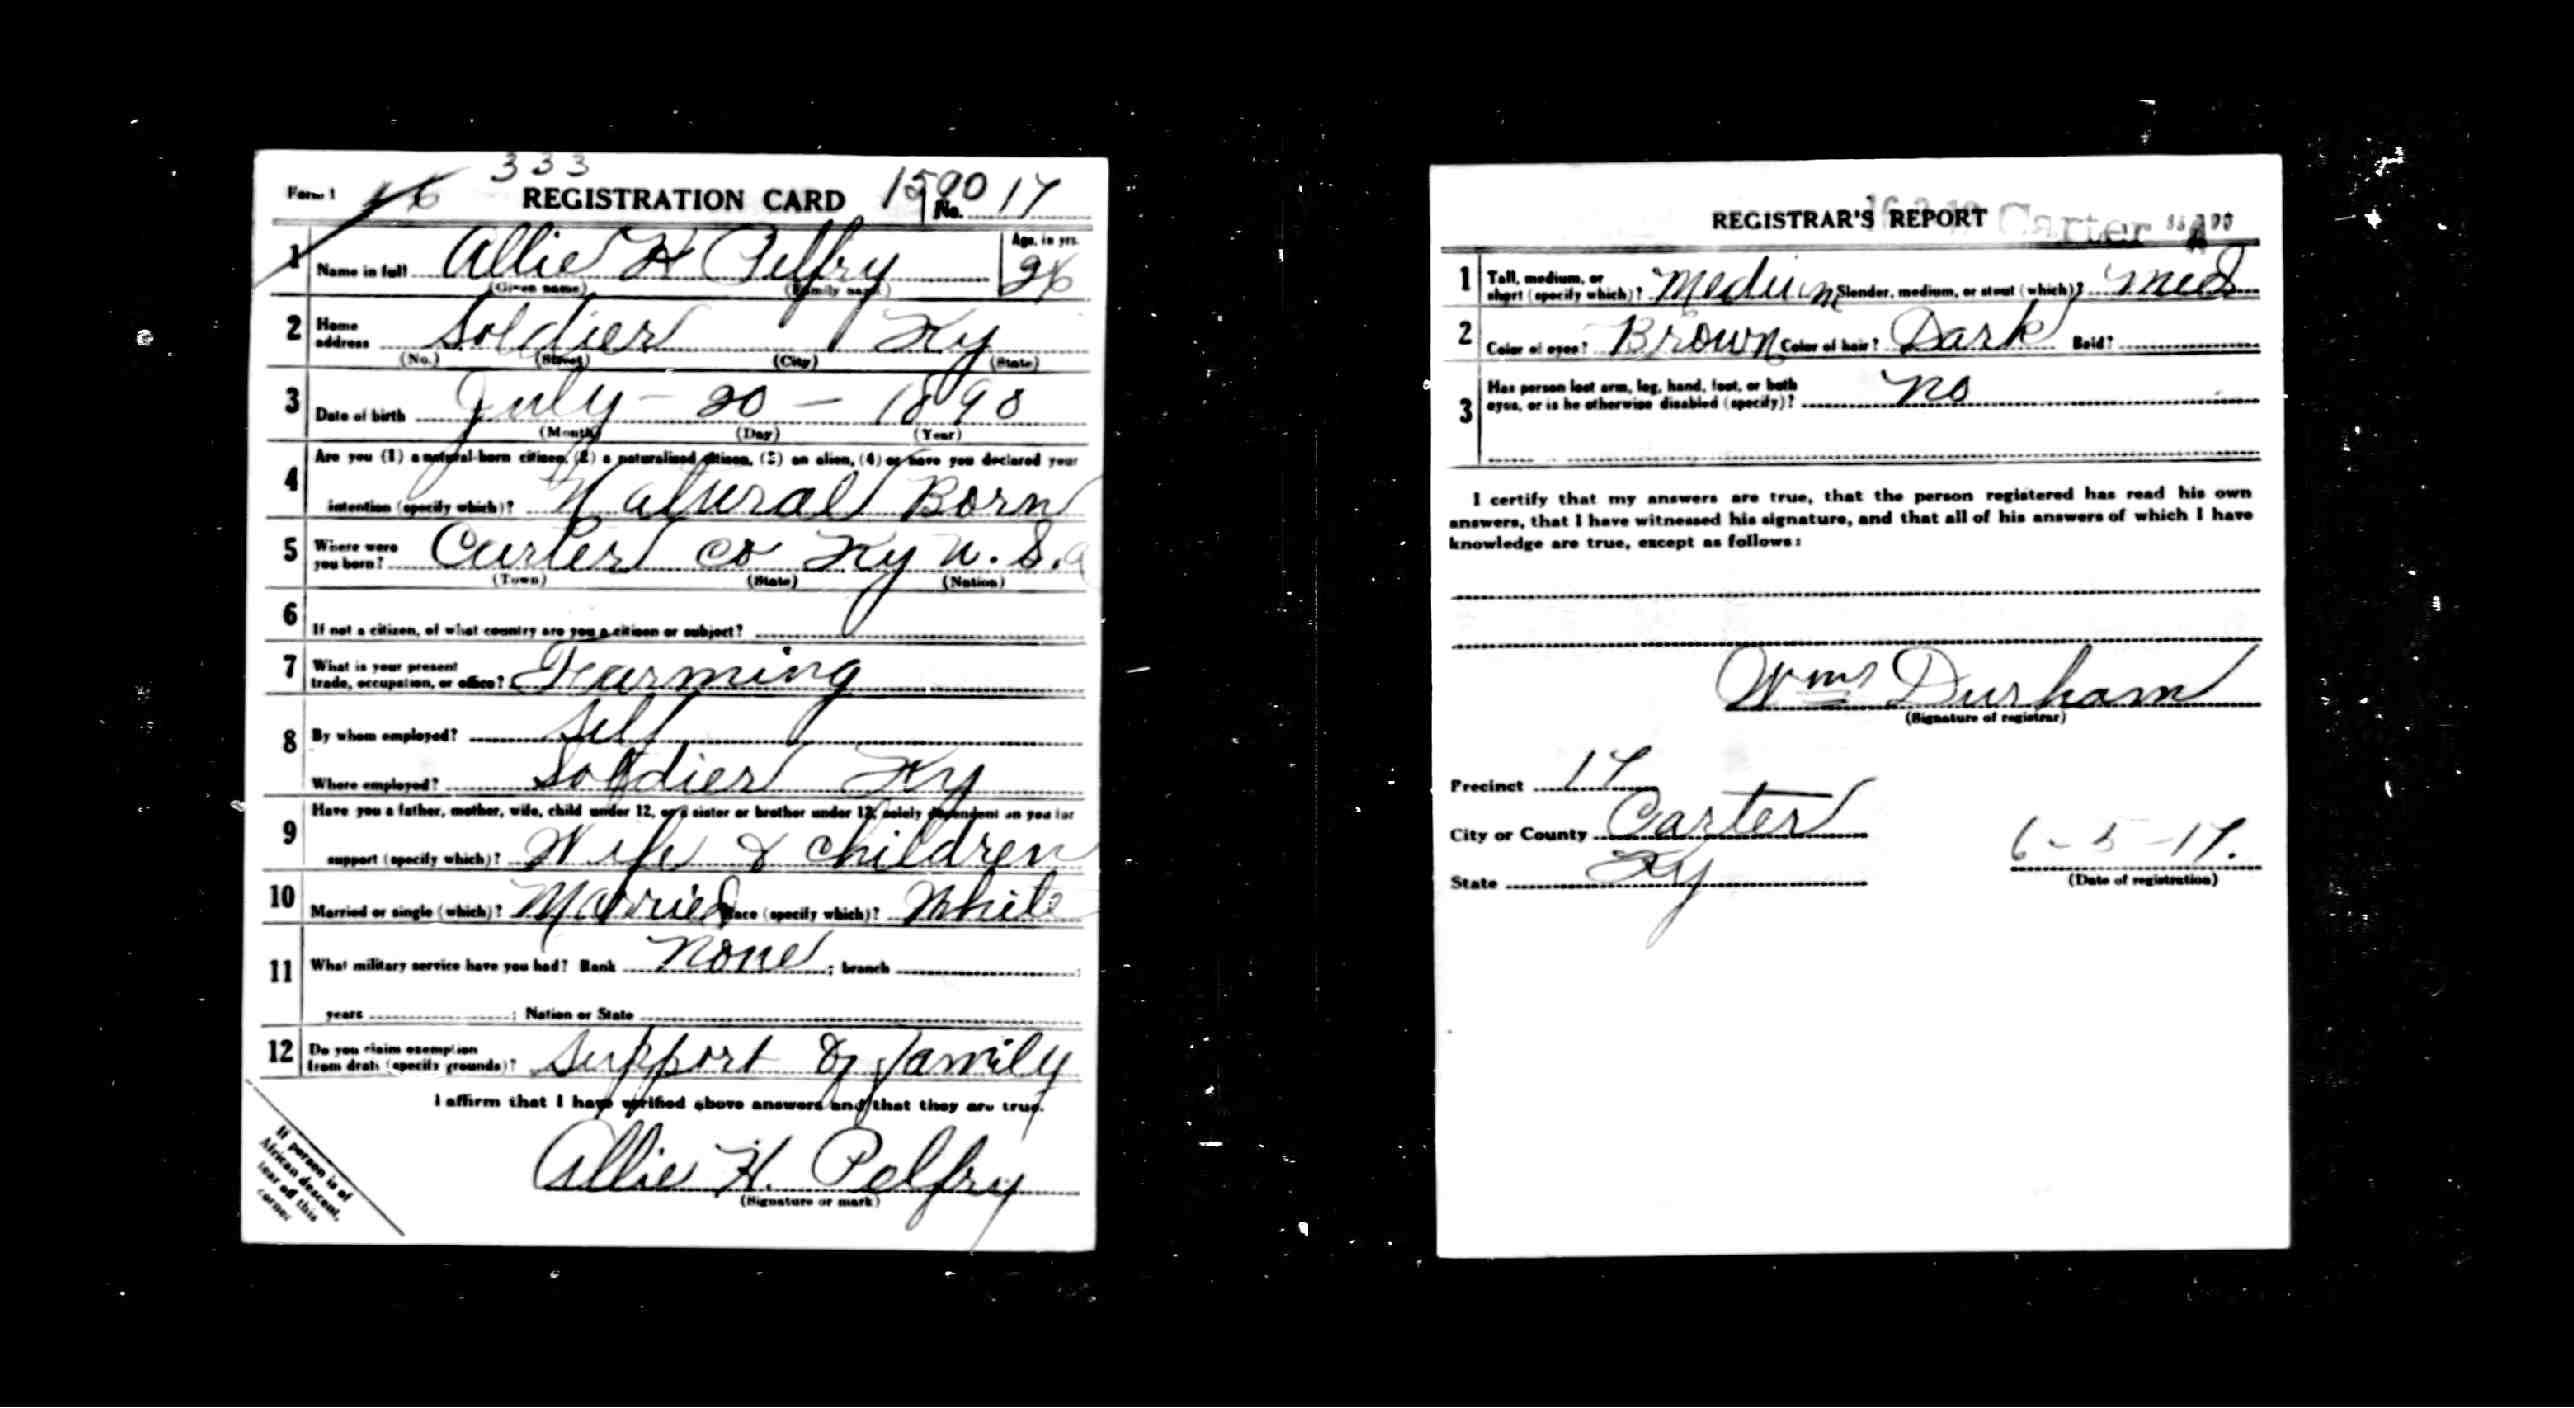 333
Form 1 REGISTRATION CARD 1590 No. 17
1 Name in full Allie H Pelfry Age, in yrs. 26
(Given name) (Family name)
2 Home address Soldier Ky
(No.) (Street) (City) (State)
3 Date of birth July - 20 - 1898
(Month) (Day) (Year)
4 Are you (1) a natural-born citizen, (2) a naturalized citizen, (3) an alien, (4) or have you declared your
intention (specify which)? Natural Born
5 Where were you born? Carter co Ky U.S.a
(Town) (State) (Nation)
6 If not a citizen, of what country are you a citizen or subject?
7 What is your present trade, occupation, or office? Farming
8 By whom employed? Self
Where employed? Soldier Ky
9 Have you a father, mother, wife, child under 12, or a sister or brother under 12, solely dependent on you for
support (specify which)? Wife & children
10 Married or single (which)? Married Race (specify which)? White
11 What military service have you had? Rank None ; branch ;
years ; Nation or State
12 Do you claim exemption from draft (specify grounds)? Support of family
I affirm that I have verified above answers and that they are true.
Allie H. Pelfry
(Signature or mark)
If person is of
African descent,
tear off this
corner
REGISTRAR'S REPORT Carter
1 Tall, medium, or short (specify which)? Medium Slender, medium, or stout (which)? Med
2 Color of eyes? Brown Color of hair? Dark Bald?
3 Has person lost arm, leg, hand, foot, or both eyes, or is he otherwise disabled (specify)? No
I certify that my answers are true, that the person registered has read his own
answers, that I have witnessed his signature, and that all of his answers of which I have
knowledge are true, except as follows:
Wms Durham
(Signature of registrar)
Precinct 17
City or County Carter
State Ky
6-5-17.
(Date of registration)